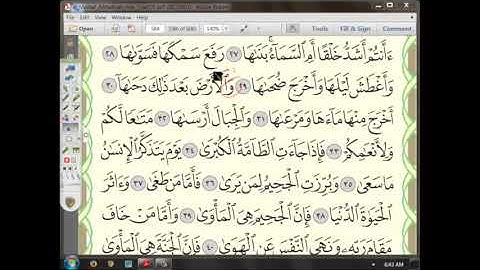 Tools
Fill & Sign
Comment
ءَأَنتُمْ أَشَدُّ خَلْقًا أَمِ ٱلسَّمَآءُ ۚ بَنَىٰهَا ٢٧ رَفَعَ سَمْكَهَا فَسَوَّىٰهَا ٢٨
وَأَغْطَشَ لَيْلَهَا وَأَخْرَجَ ضُحَىٰهَا ٢٩ وَٱلْأَرْضَ بَعْدَ ذَٰلِكَ دَحَىٰهَآ ٣٠
أَخْرَجَ مِنْهَا مَآءَهَا وَمَرْعَىٰهَا ٣١ وَٱلْجِبَالَ أَرْسَىٰهَا ٣٢ مَتَٰعًا لَّكُمْ
وَلِأَنْعَٰمِكُمْ ٣٣ فَإِذَا جَآءَتِ ٱلطَّآمَّةُ ٱلْكُبْرَىٰ ٣٤ يَوْمَ يَتَذَكَّرُ ٱلْإِنسَٰنُ
مَا سَعَىٰ ٣٥ وَبُرِّزَتِ ٱلْجَحِيمُ لِمَن يَرَىٰ ٣٦ فَأَمَّا مَن طَغَىٰ ٣٧ وَءَاثَرَ
ٱلْحَيَوٰةَ ٱلدُّنْيَا ٣٨ فَإِنَّ ٱلْجَحِيمَ هِىَ ٱلْمَأْوَىٰ ٣٩ وَأَمَّا مَنْ خَافَ
مَقَامَ رَبِّهِۦ وَنَهَى ٱلنَّفْسَ عَنِ ٱلْهَوَىٰ ٤٠ فَإِنَّ ٱلْجَنَّةَ هِىَ ٱلْمَأْوَىٰ
4:43 AM